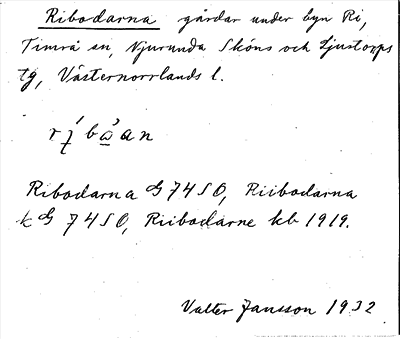 Ribodarna gårdar under byn Ri,
Timrå sn, Njurunda Sköns och Ljustorps
tg, Västernorrlands l.
Ribodarna G 7450, Riibodarna
k G 7450, Riibodarne kb 1919.
Valter Jansson 1932